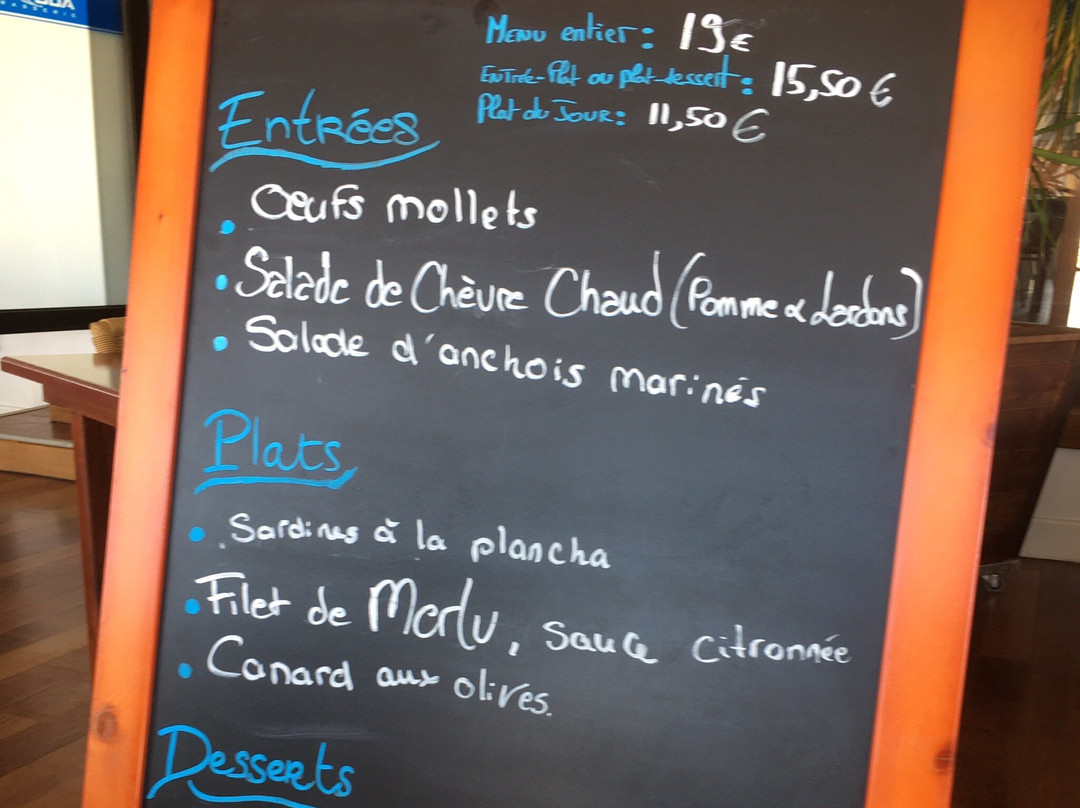 Menu entier: 19€
Entrée-Plat ou plat-dessert: 15,50€
Plat du Jour: 11,50€
Entrées
Oeufs mollets
Salade de Chèvre Chaud (Pomme & Lardons)
Salade d'anchois marinés
Plats
Sardines à la plancha
Filet de Merlu, sauce citronnée
Canard aux olives.
Desserts